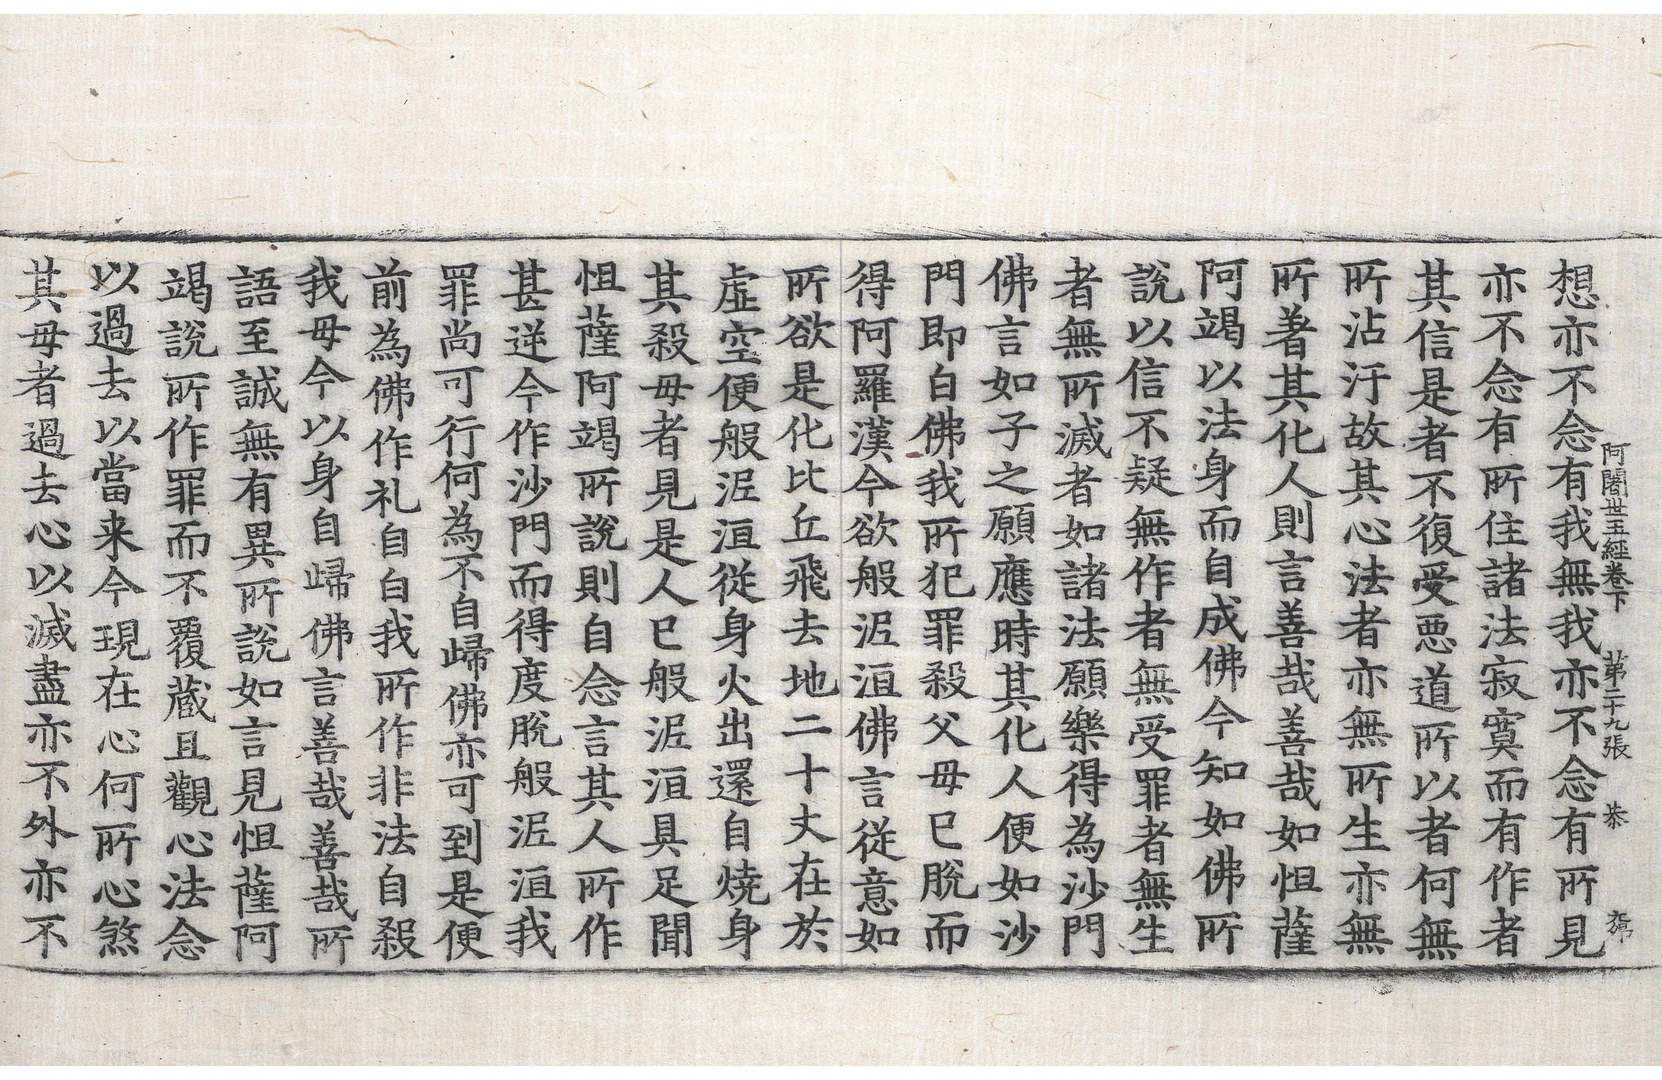 阿闍世王經卷下　第二十九張　恭
想亦不念有我無我亦不念有所見
亦不念有所住諸法寂寞而有作者
其信是者不復受惡道所以者何無
所沾汙故其心法者亦無所生亦無
所著其化人則言善哉善哉如怛薩
阿竭以法身而自成佛今知如佛所
說以信不疑無作者無受罪者無生
者無所滅者如諸法願樂得為沙門
佛言如子之願應時其化人便如沙
門即白佛我所犯罪殺父母已脫而
得阿羅漢今欲般泥洹佛言從意如
所欲是化比丘飛去地二十丈在於
虛空便般泥洹從身火出還自燒身
其殺母者見是人已般泥洹具足聞
怛薩阿竭所說則自念言其人所作
甚逆今作沙門而得度脫般泥洹我
罪尚可行何為不自歸佛亦可到是便
前為佛作礼自白我所作非法自殺
我母今以身自歸佛言善哉善哉所
語至誠無有異所說如言見怛薩阿
竭說所作罪而不覆藏且觀心法念
以過去以當来今現在心何所心煞
其母者過去心以滅盡亦不外亦不